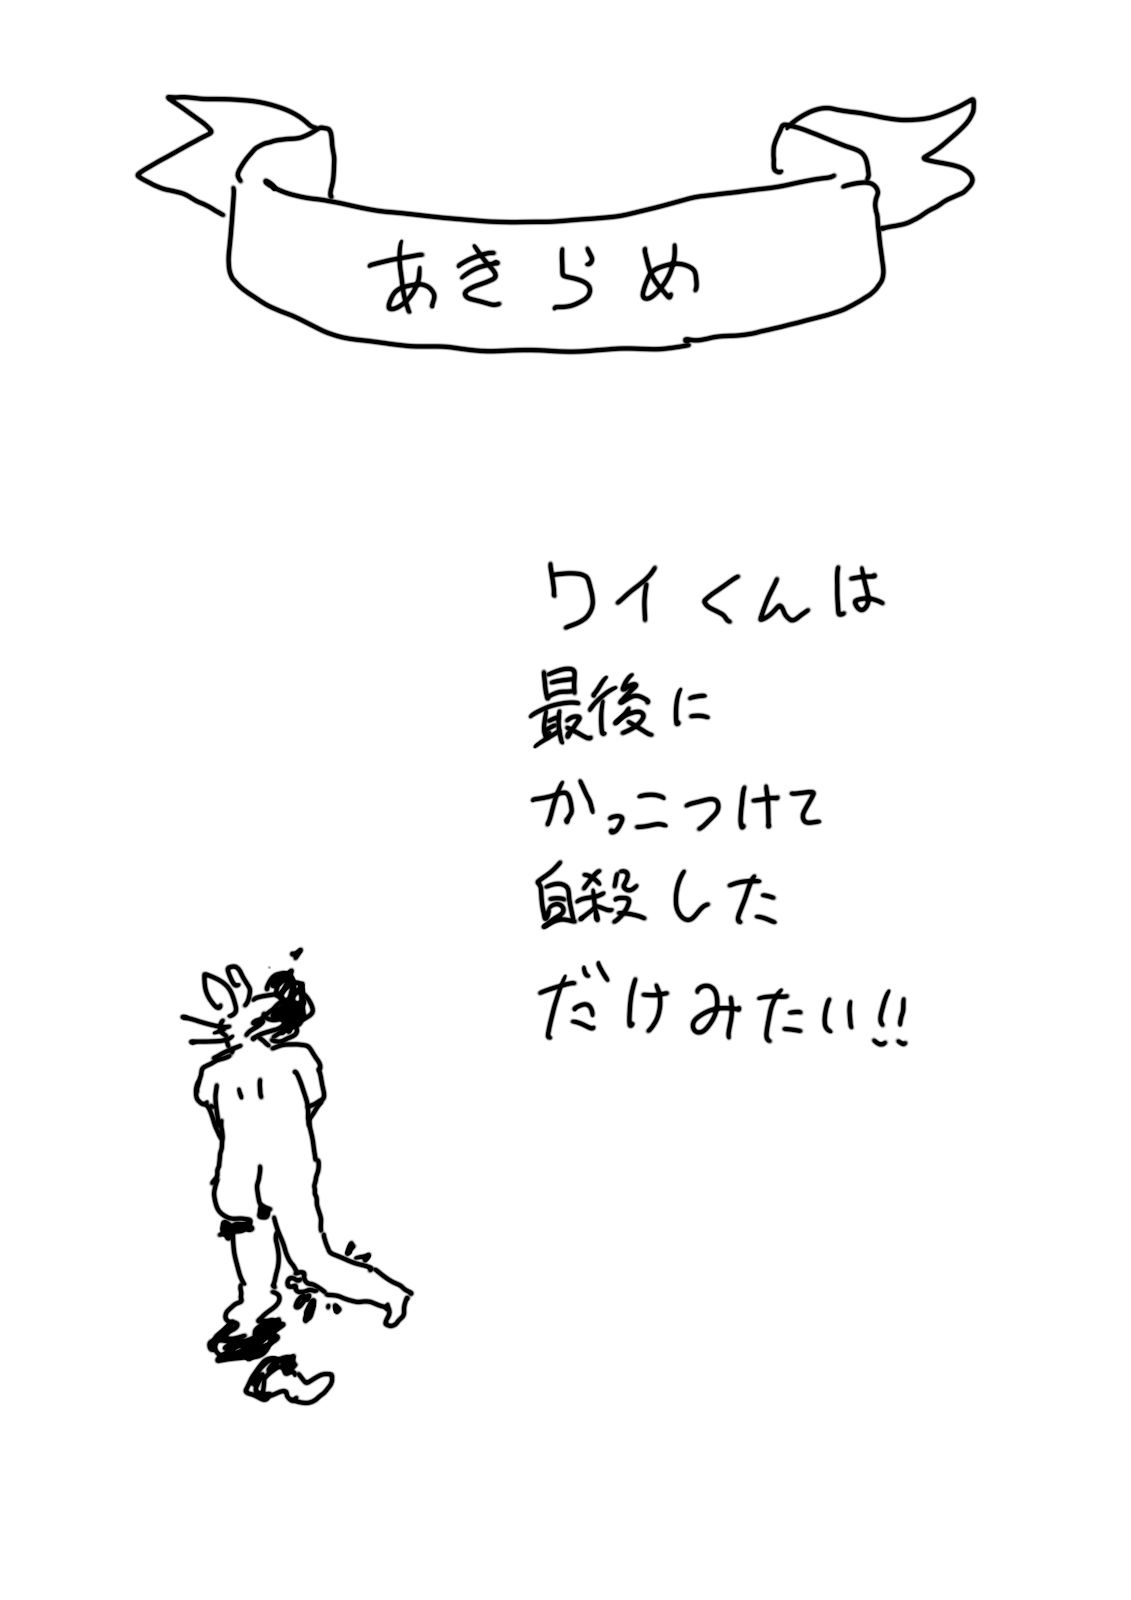 あきらめ
ワイくんは
最後に
かっこつけて
自殺した
だけみたい!!